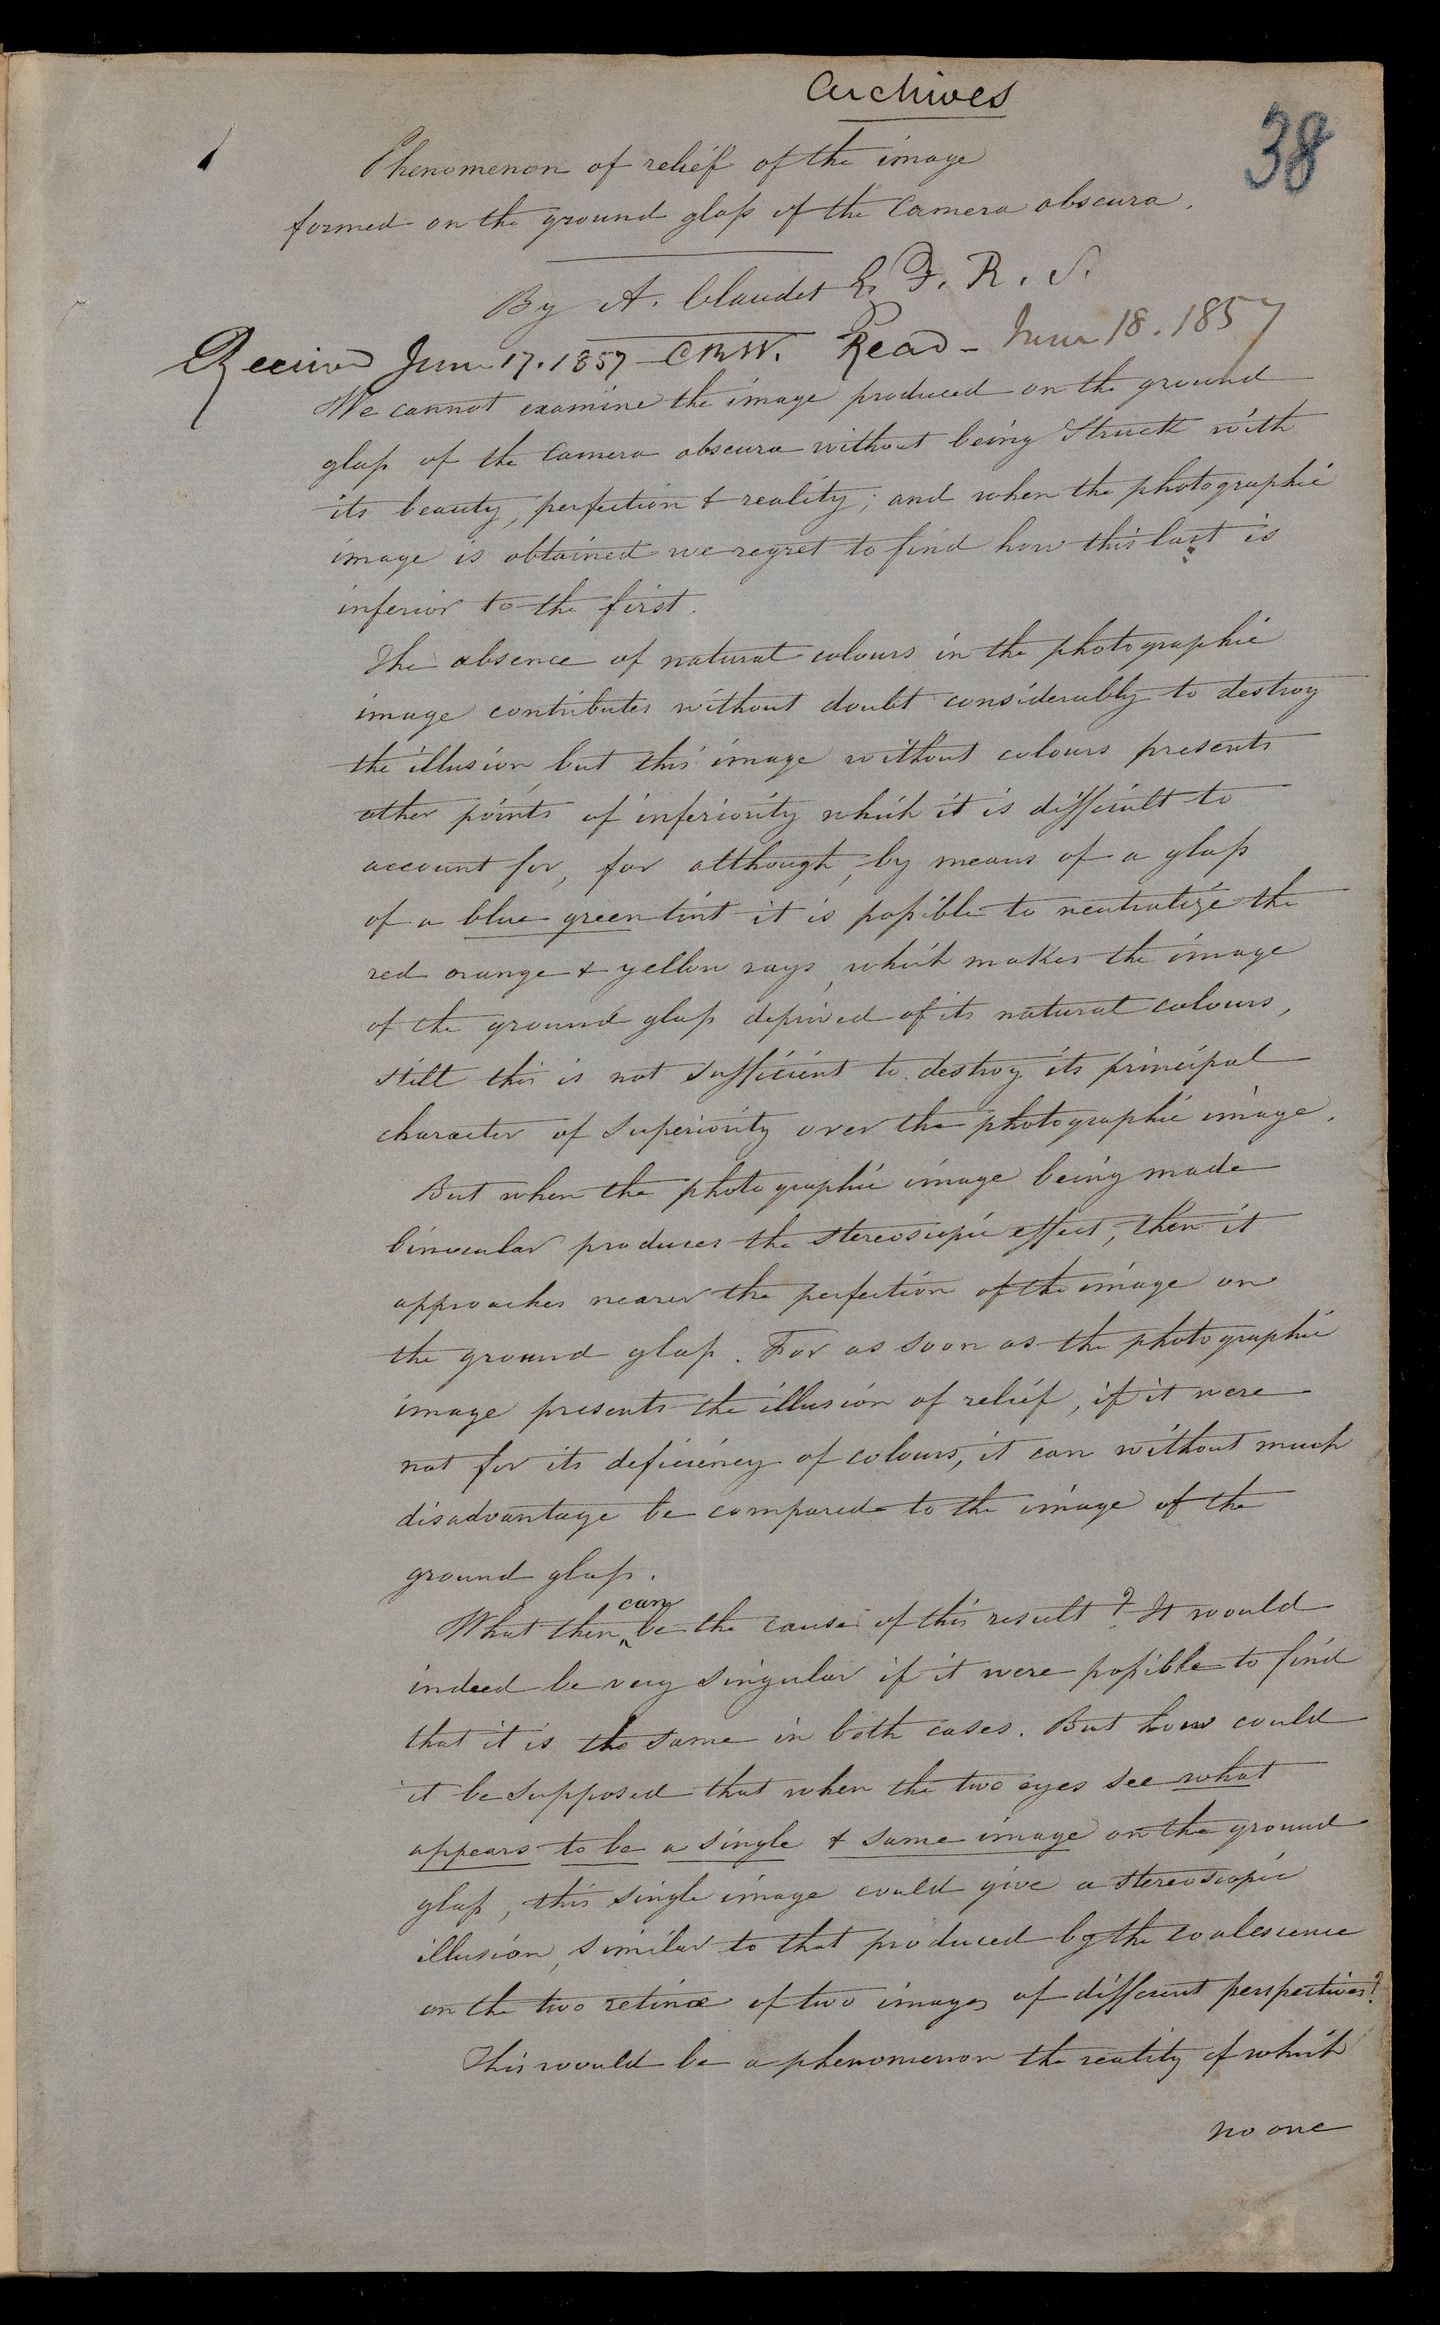 Archives
38
Phenomenon of relief of the image
formed on the ground glass of the Camera obscura.
By A. Claudet F. R. S.
Received June 17. 1857 C R W. Read - June 18. 1857
We cannot examine the image produced on the ground
glass of the Camera obscura without being Struck with
its beauty, perfection & reality; and when the photographic
image is obtained we regret to find how this last is
inferior to the first.
The absence of natural colours in the photographic
image contributes without doubt considerably to destroy
the illusion, but this image without colours presents
other points of inferiority which it is difficult to
account for, for although, by means of a glass
of a blue green tint it is possible to neutralize the
red orange & yellow rays, which makes the image
of the ground glass deprived of its natural colours,
still this is not sufficient to destroy its principal
character of Superiority over the photographic image.
But when the photographic image being made
binocular produces the stereoscopic effect, then it
approaches nearer the perfection of the image on
the ground glass. For as soon as the photographic
image presents the illusion of relief, if it were
not for its deficiency of colours, it can without much
disadvantage be compared to the image of the
ground glass.
What then can be the cause of this result? It would
indeed be very singular if it were possible to find
that it is the same in both cases. But how could
it be supposed that when the two eyes see what
appears to be a single & same image on the ground
glass, this single image could give a stereoscopic
illusion, similar to that produced by the coalescence
on the two retinæ of two images of different perspectives?
This would be a phenomenon the reality of which
no one